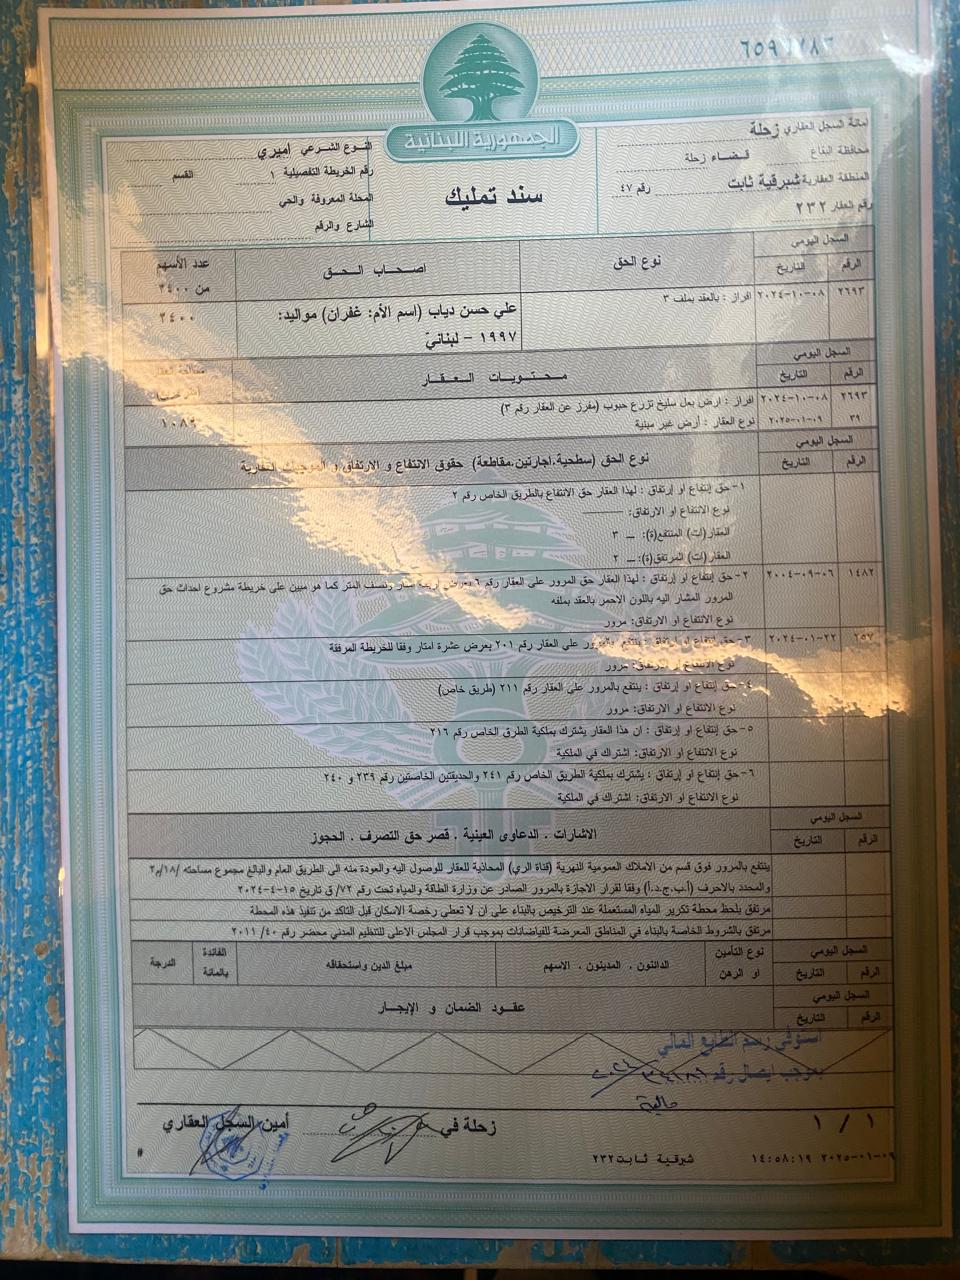 الجمهورية اللبنانية
سند تمليك
أمانة السجل العقاري زحلة
محافظة البقاع قضاء زحلة
المنطقة العقارية شبرقية ثابت رقم ٤٧
رقم العقار ٢٣٢
النوع الشرعي أميري
رقم الخريطة التفصيلية ١ القسم
المحلة المعروفة والحي
الشارع والرقم
السجل اليومي
الرقم التاريخ
نوع الحق
اصحاب الحق
عدد الأسهم
من ٢٤٠٠
٢٦٩٣ ٢٠٢٤-١٠-٠٨ افراز : بالعقد بملف ٣
علي حسن دياب (اسم الأم: غفران) مواليد:
١٩٩٧ - لبناني
٢٤٠٠
السجل اليومي
الرقم التاريخ
محتويات العقار
٢٦٩٣ ٢٠٢٤-١٠-٠٨ افراز : ارض بعل سليخ تزرع حبوب (مفرز عن العقار رقم ٣)
٣٩ ٢٠٢٥-٠١-٠٩ نوع العقار : أرض غير مبنية
السجل اليومي
الرقم التاريخ
نوع الحق (سطحية.اجارتين.مقاطعة) حقوق الانتفاع و الارتفاق و الموجبات العقارية
١- حق إنتفاع او إرتفاق : لهذا العقار حق الانتفاع بالطريق الخاص رقم ٢
نوع الانتفاع او الارتفاق:
العقار(ات) المنتفع(ة): ـ ٣
العقار(ات) المرتفق(ة): ـ ٢
١٤٨٢ ٢٠٠٤-٠٩-٠٦ ٢- حق إنتفاع او إرتفاق : لهذا العقار حق المرور على العقار رقم ٦ بعرض اربعة امتار ونصف المتر كما هو مبين على خريطة مشروع احداث حق
المرور المشار اليه باللون الاحمر بالعقد بملفه
نوع الانتفاع او الارتفاق: مرور
٢٥٧ ٢٠٢٤-٠١-٢٢ ٣- حق إنتفاع او إرتفاق : ينتفع بالمرور على العقار رقم ٢٠١ بعرض عشرة امتار وفقا للخريطة المرفقة
نوع الانتفاع او الارتفاق: مرور
٤- حق إنتفاع او إرتفاق : ينتفع بالمرور على العقار رقم ٢١١ (طريق خاص)
نوع الانتفاع او الارتفاق: مرور
٥- حق إنتفاع او إرتفاق : ان هذا العقار يشترك بملكية الطرق الخاص رقم ٢١٦
نوع الانتفاع او الارتفاق: اشتراك في الملكية
٦- حق إنتفاع او إرتفاق : يشترك بملكية الطريق الخاص رقم ٢٤١ والحديقتين الخاصتين رقم ٢٣٩ و ٢٤٠
نوع الانتفاع او الارتفاق: اشتراك في الملكية
السجل اليومي
الرقم التاريخ
الاشارات . الدعاوى العينية . قصر حق التصرف . الحجوز
ينتفع بالمرور فوق قسم من الاملاك العمومية النهرية (قناة الري) المحاذية للعقار للوصول اليه والعودة منه الى الطريق العام والبالغ مجموع مساحته /١٨/م٢
والمحدد بالاحرف (أ.ب.ج.د.أ) وفقا لقرار الاجازة بالمرور الصادر عن وزارة الطاقة والمياه تحت رقم ٧٢/ق تاريخ ١٥-٤-٢٠٢٤
مرتفق بلحظ محطة تكرير المياه المستعملة عند الترخيص بالبناء على ان لا تعطى رخصة الاسكان قبل التاكد من تنفيذ هذه المحطة
مرتفق بالشروط الخاصة بالبناء في المناطق المعرضة للفياضانات بموجب قرار المجلس الاعلى للتنظيم المدني محضر رقم ٤٠/ ٢٠١١
السجل اليومي
الرقم التاريخ
نوع التأمين
او الرهن
الدائنون . المدينون . الاسهم
مبلغ الدين واستحقاقه
الفائدة
بالمائة
الدرجة
السجل اليومي
الرقم التاريخ
عقود الضمان و الإيجار
استوفي رسم الطابع المالي
بموجب ايصال رقم
مالية
١ / ١
زحلة في
أمين السجل العقاري
٢٠٢٥-٠١-٠٩ ١٤:٥٨:١٩
شبرقية ثابت٢٣٢
#